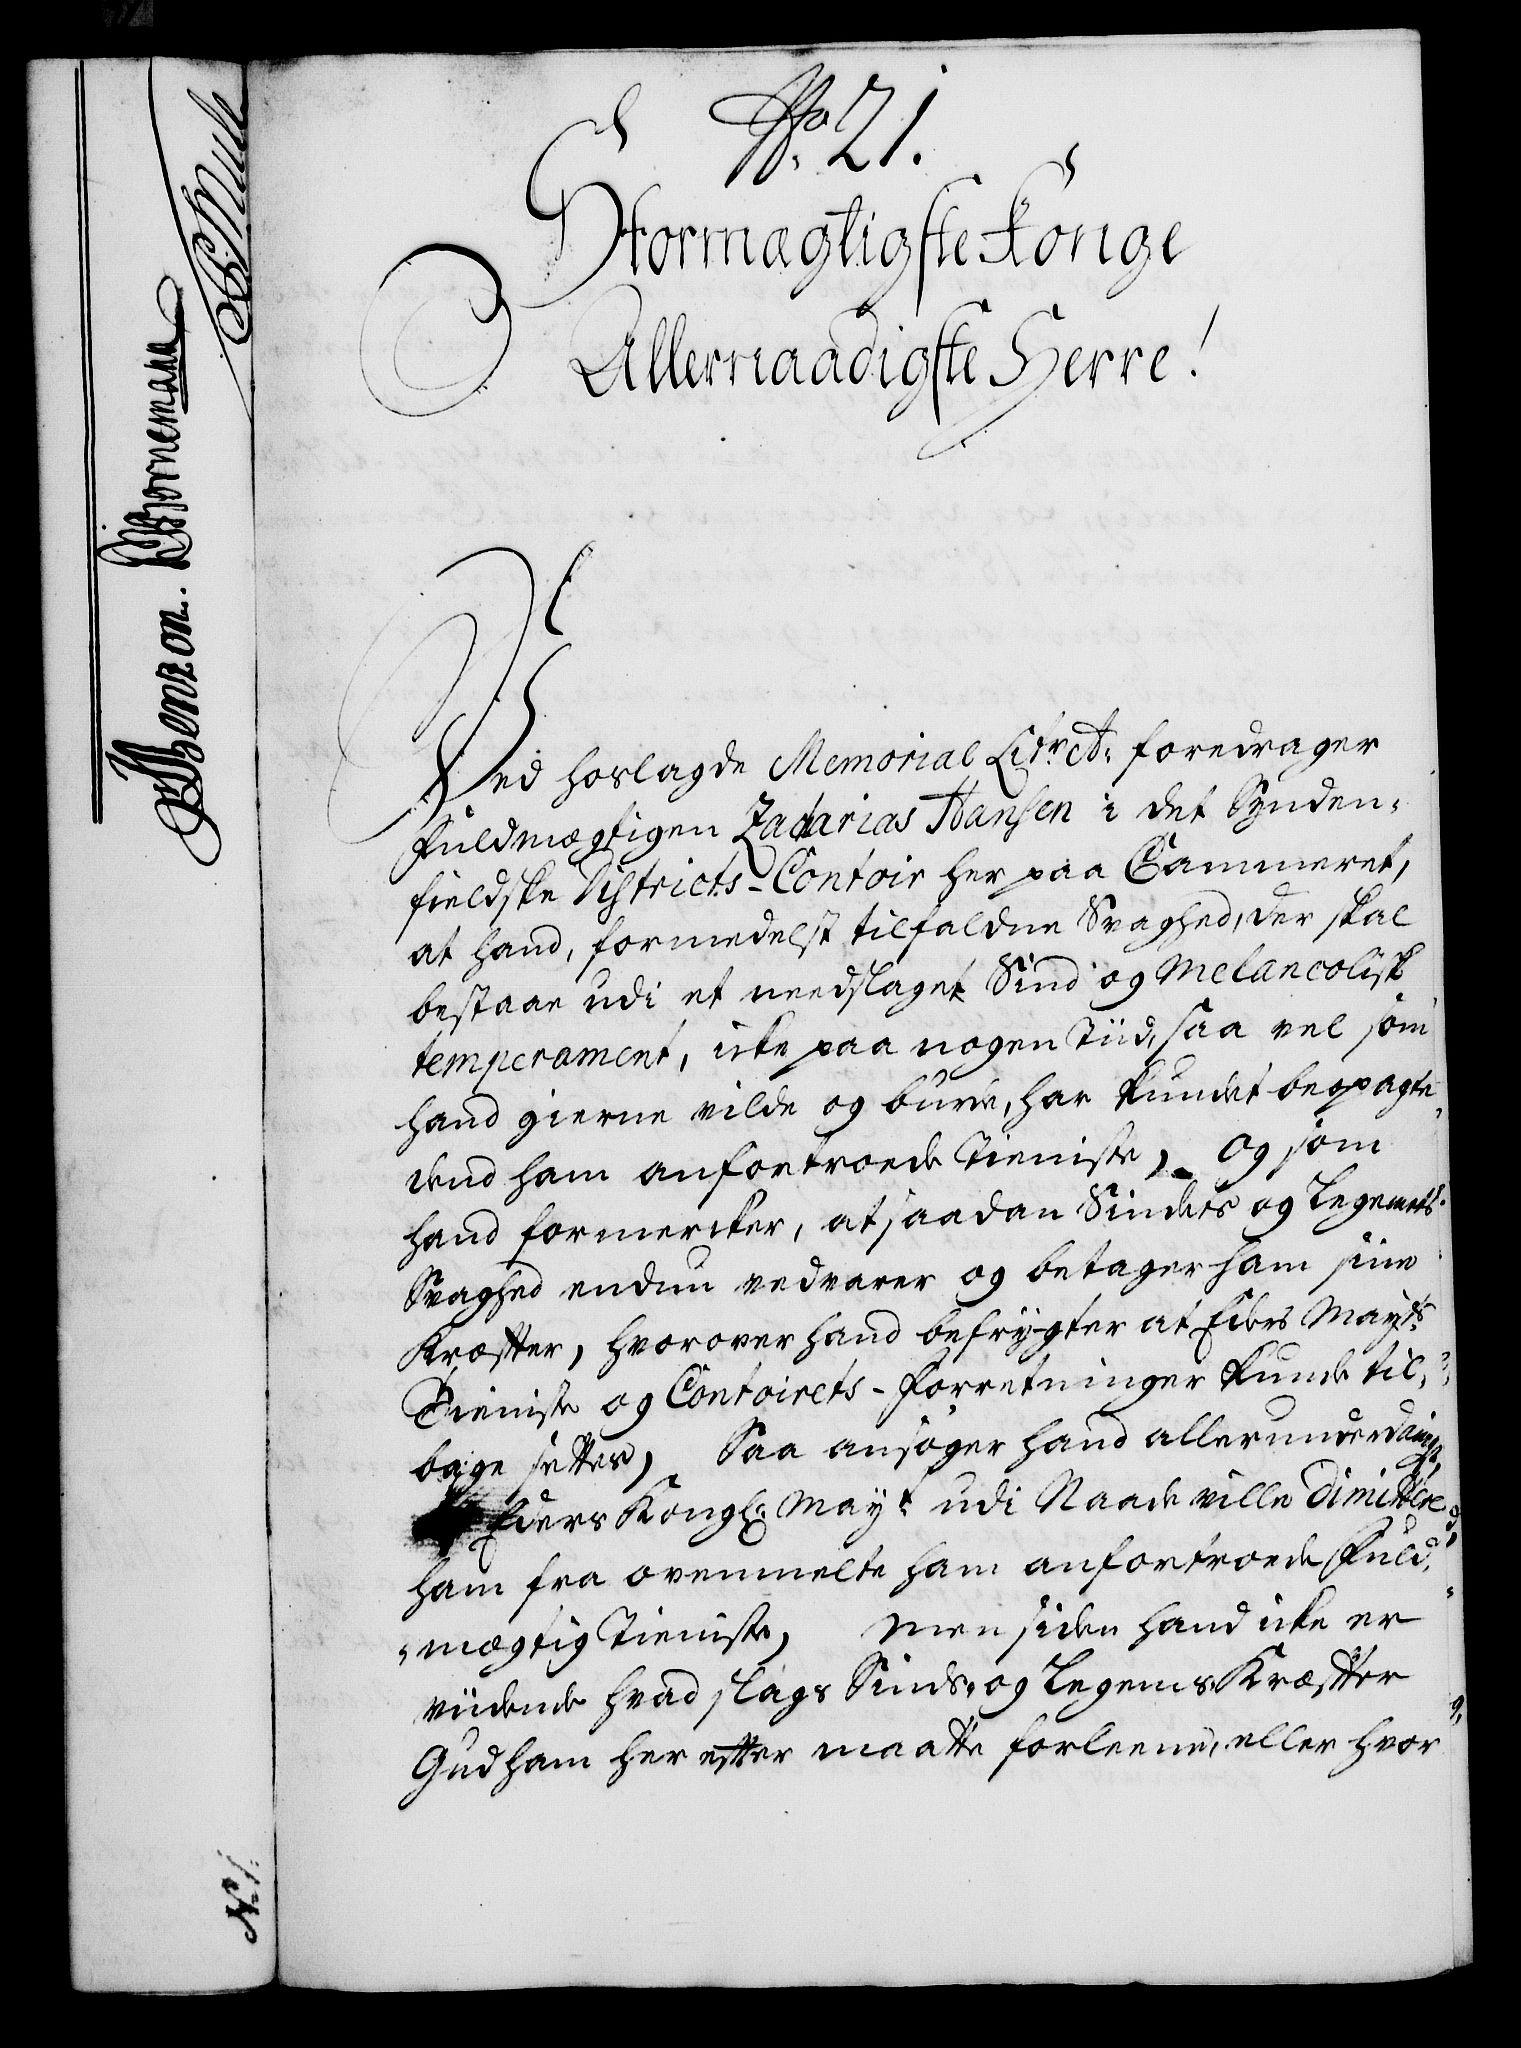 No. 21.
Stormægtigste Konge
Allernaadigste Herre!
Ved hoslagde Memorial Litr. A: foredrager
Fuldmægtigen Zacharias Hansen i det Synden-
fieldske Districts-Contoir her paa Cammeret,
at hand, formedelst tilfaldne Svaghed, der skal
bestaae udi et needslaget Sind og Melancolisk
temperament, icke paa nogen Tiid, saa vel som
hand gierne vilde og burde, har kundet beopagte
dend ham anfortroede Tieniste, og som
hand formercker, at saadan Sindets og Legemets
Svaghed endnu vedvarer og betager ham sine
Kræffter, hvorover hand befrygter at Eders Mayts.
Tieniste og Contoirets-Forretninger kunde til-
bage settes, Saa ansøger hand allerunderdanigst,
Eders Kongl: Mayt. udi Naade ville dimittere
ham fra ovenmelte ham anfortroede Fuld-
mægtig Tieniste, Men siden hand icke er
viidende hvad slags Sinds- og Legems Kræffter
Gud ham her effter maatte forleene, eller hvor
Benzon. Bornemann
No. 1.